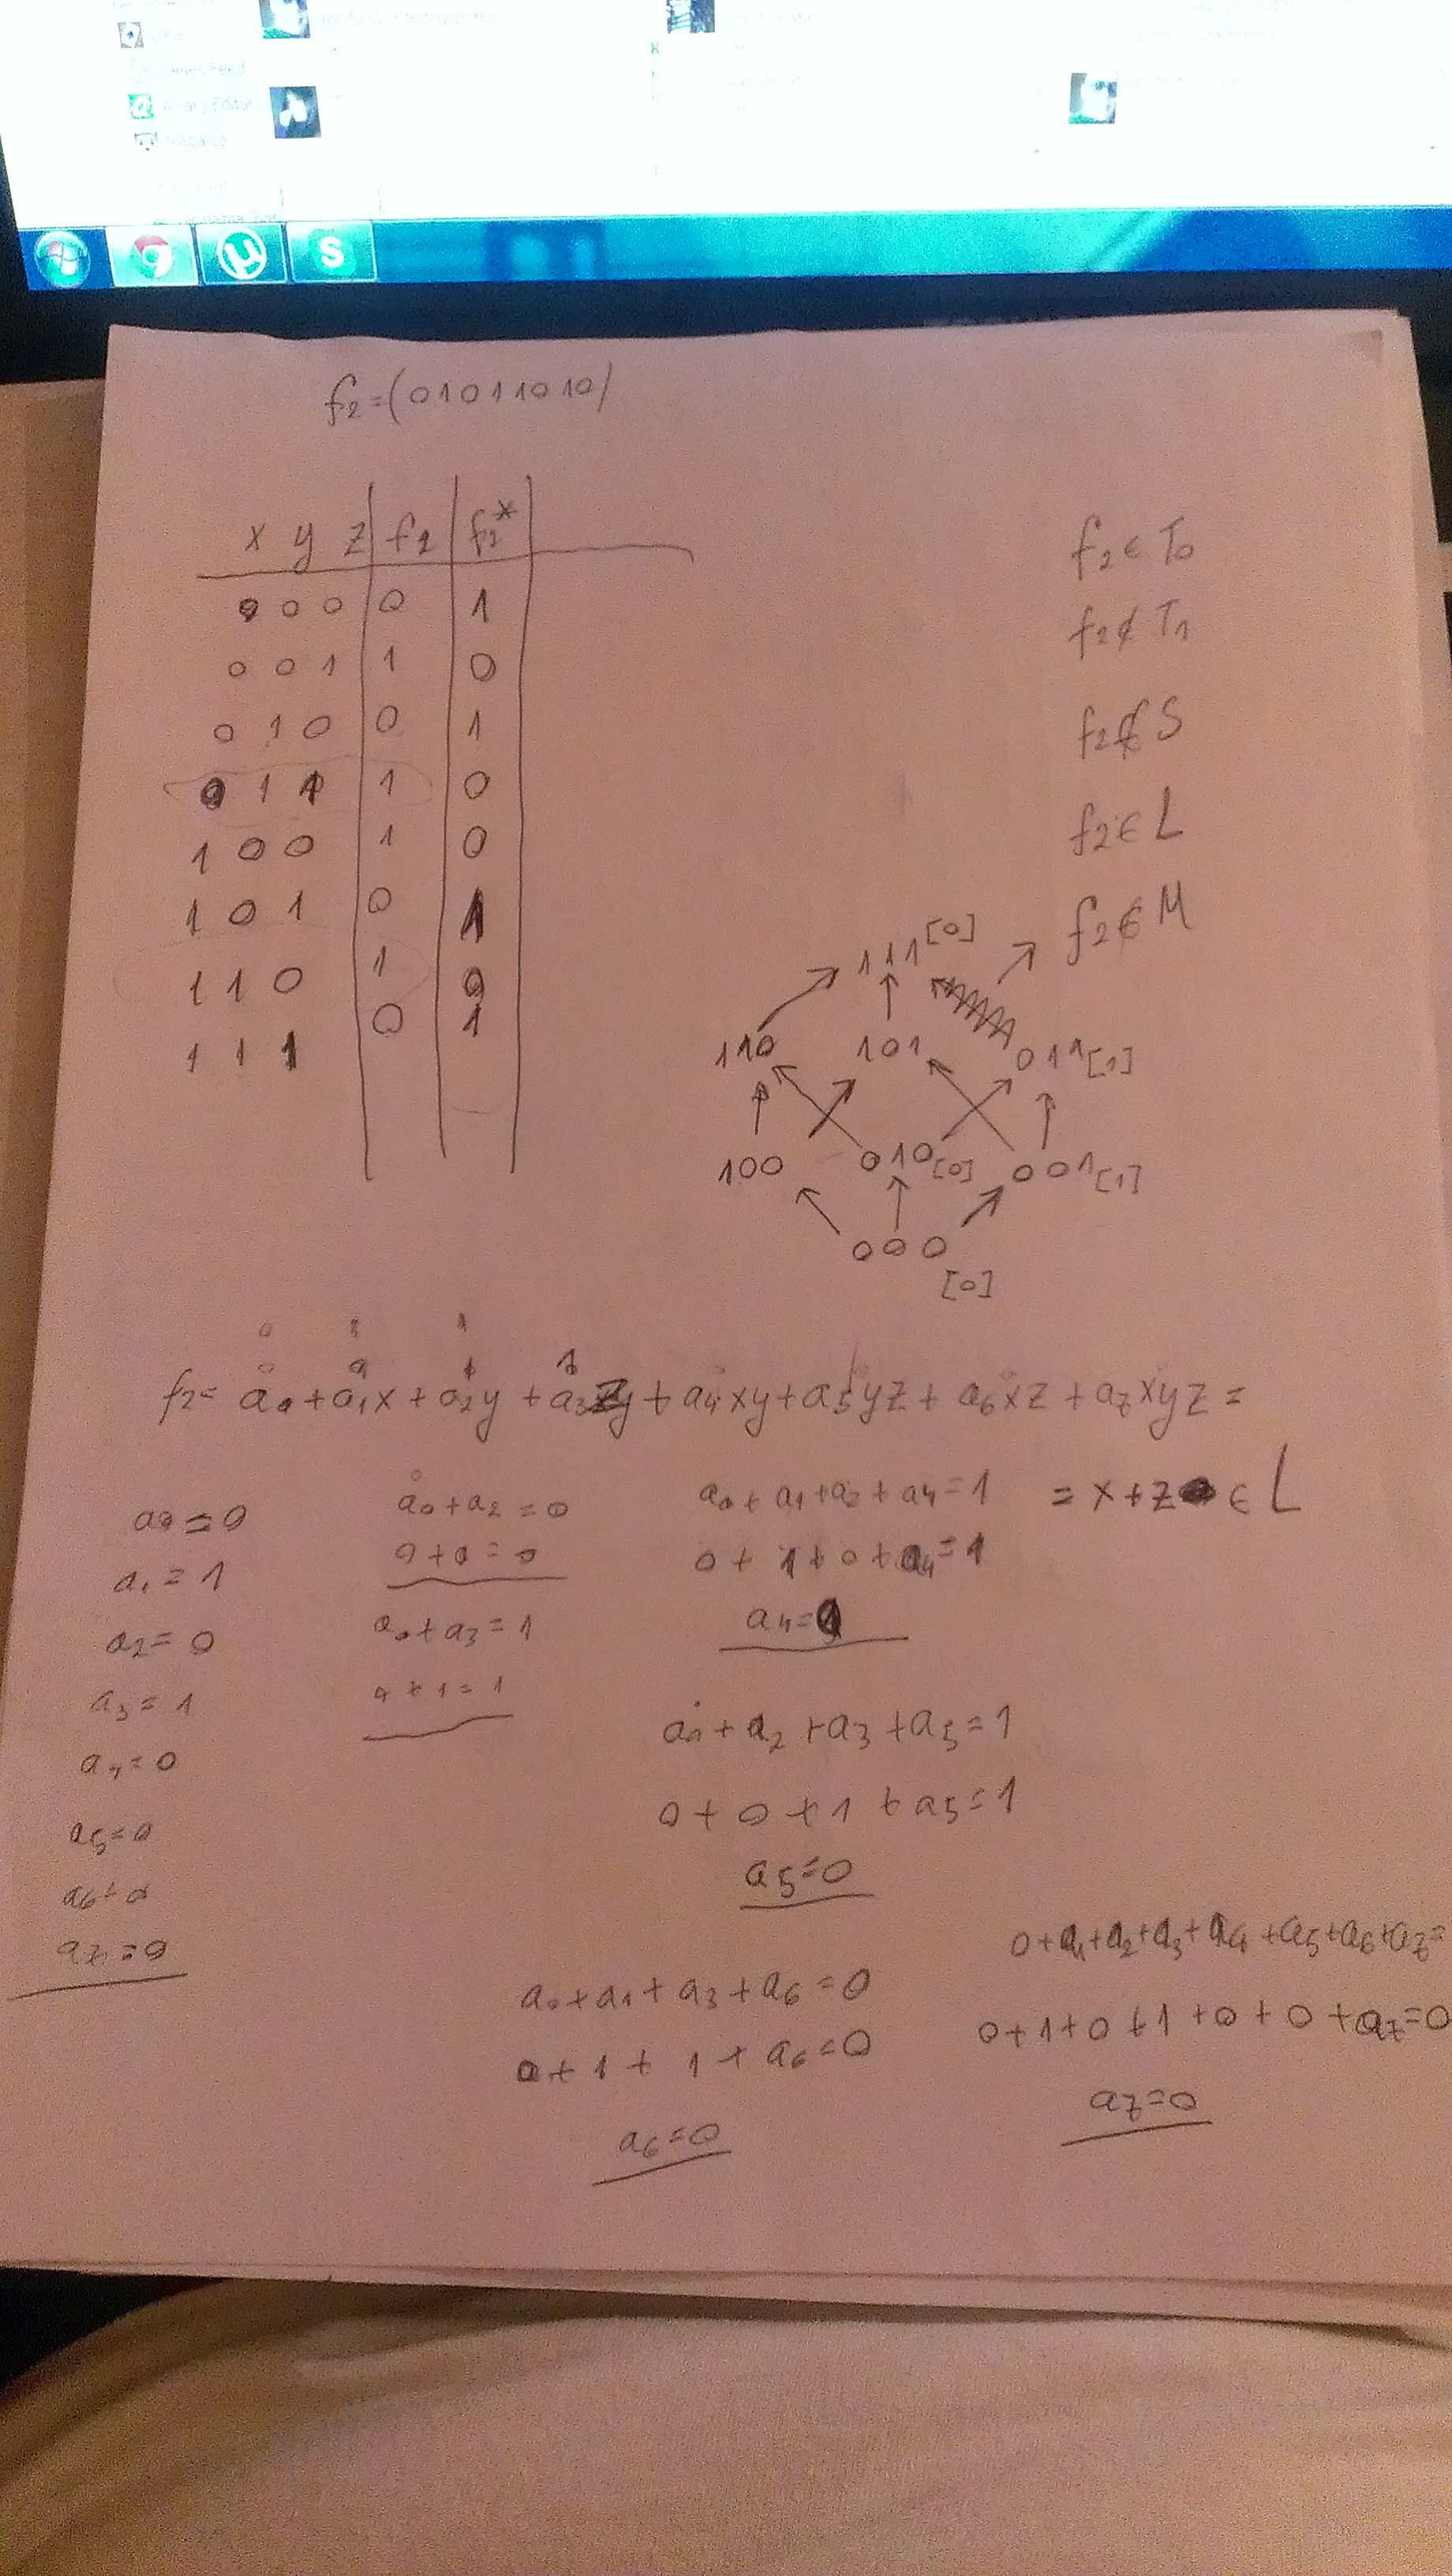 S
f₂=(01011010)
x y z f₂ f₂*
0 0 0 0 1
0 0 1 1 0
0 1 0 0 1
0 1 1 1 0
1 0 0 1 0
1 0 1 0 1
1 1 0 1 0
1 1 1 0 1
f₂ ∈ T₀
f₂ ∉ T₁
f₂ ∉ S
f₂ ∈ L
f₂ ∉ M
111 [0]
110 101 011 [1]
100 010 [0] 001 [1]
000
[0]
0 1 1
0 0 1 1
f₂ = a₀ + a₁x + a₂y + a₃z + a₄xy + a₅yz + a₆xz + a₇xyz =
= x + z ∈ L
a₀ = 0
a₁ = 1
a₂ = 0
a₃ = 1
a₄ = 0
a₅ = 0
a₆ = 0
a₇ = 0
a₀ + a₂ = 0
0 + 0 = 0
a₀ + a₃ = 1
0 + 1 = 1
a₀ + a₁ + a₂ + a₄ = 1
0 + 1 + 0 + a₄ = 1
a₄ = 0
a₀ + a₂ + a₃ + a₅ = 1
0 + 0 + 1 + a₅ = 1
a₅ = 0
a₀ + a₁ + a₃ + a₆ = 0
0 + 1 + 1 + a₆ = 0
a₆ = 0
0 + a₁ + a₂ + a₃ + a₄ + a₅ + a₆ + a₇ =
0 + 1 + 0 + 1 + 0 + 0 + a₇ = 0
a₇ = 0